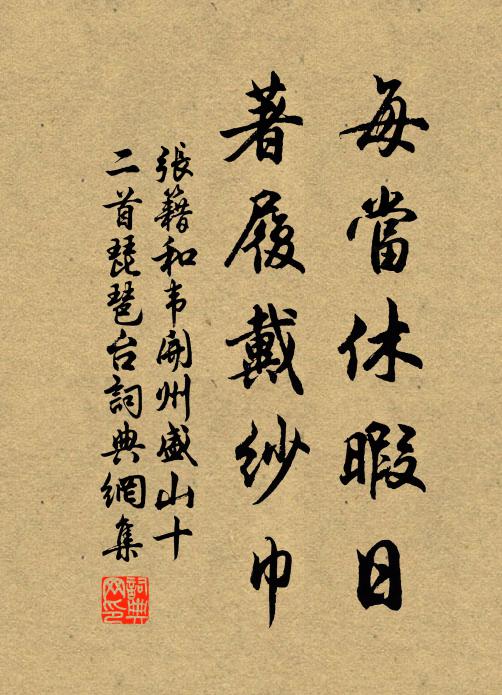 每當休暇日
著履戴紗巾
張籍和韦開州盛山十
二首琵琶台詞典網集
詞典
网印